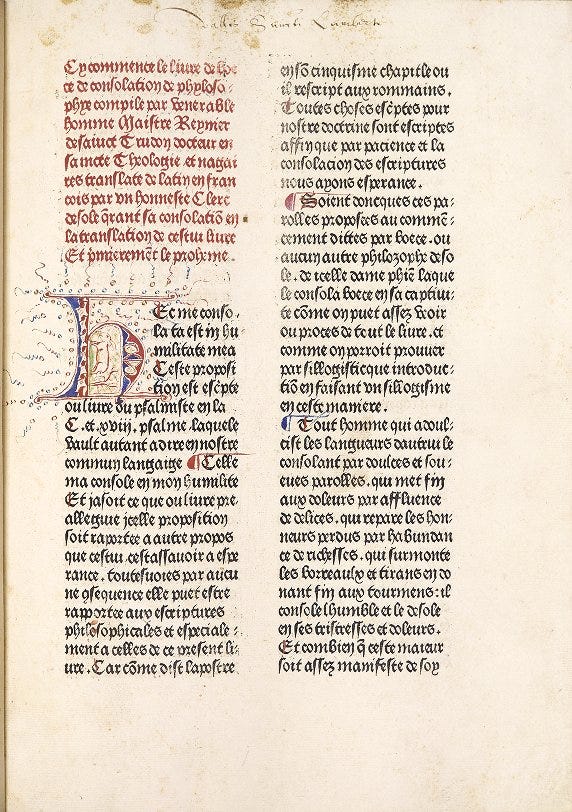 Vallis Sancti Lamberti
Cy commence le liure de boe
ce de consolation de phyloso⸗
phye compile par venerable
homme Maistre Reynier
de saiuct Trudon docteur en
saincte Theologie et nagai
res translate de latin en fran
cois par vn honneste Clerc
desole q̄rant sa consolatiō en
la translation de cestui liure
Et p̄mieremēt le prohyme.
HEc me conso⸗
la ta est in hu⸗
militate mea
Ceste proposi
tion est escēpte
ou liure du psalmiste en la
C. et. xviij. psalme. laquele
vault autant a dire en nostre
commun langaige Celle
ma console en mon humilite
Et ja soit ce que ou liure pre⸗
alleguie jcelle proposition
soit raportee a autre propos
que cestui. cest assauoir a espe
rance. toutesuoies par aucu
ne 9sequence elle puet estre
rapportee aux escriptures
philosophicales et especiale⸗
ment a celles de ce present li⸗
ure. Car cōme dist lapostre
en sō cinquisme chapitle ou
il rescript aux rommains.
Toutes choses escēptes pour
nostre doctrine sont escriptes
affin que par pacience et la
consolacion des escriptures
nous ayons esperance.
Soient doncques ces pa⸗
rolles proposees au commē⸗
cement dittes par boece. ou
aucun autre philozophe deso
le. de icelle dame phiē laque
le consola boece en sa captiui⸗
te cōme on puet assez veoir
ou proces de tout le liure. et
comme on porroit prouuer
par sillogistic que introduc⸗
tiō en faisant vn sillogisme
en ceste maniere.
Tout homme qui adoul⸗
cist les langueurs dautrui le
consolant par doulces et sou⸗
eues parolles. qui met fin
aux doleurs par affluence
de delices. qui repare les hon⸗
neurs perdus par habundan
ce de richesses. qui surmonte
les borreaulx et tirans en do
nant fin aux tourmens: il
console lhumble et le desole
en ses tristresses et doleurs.
Et combien q̄ ceste maieur
soit assez manifeste de soy